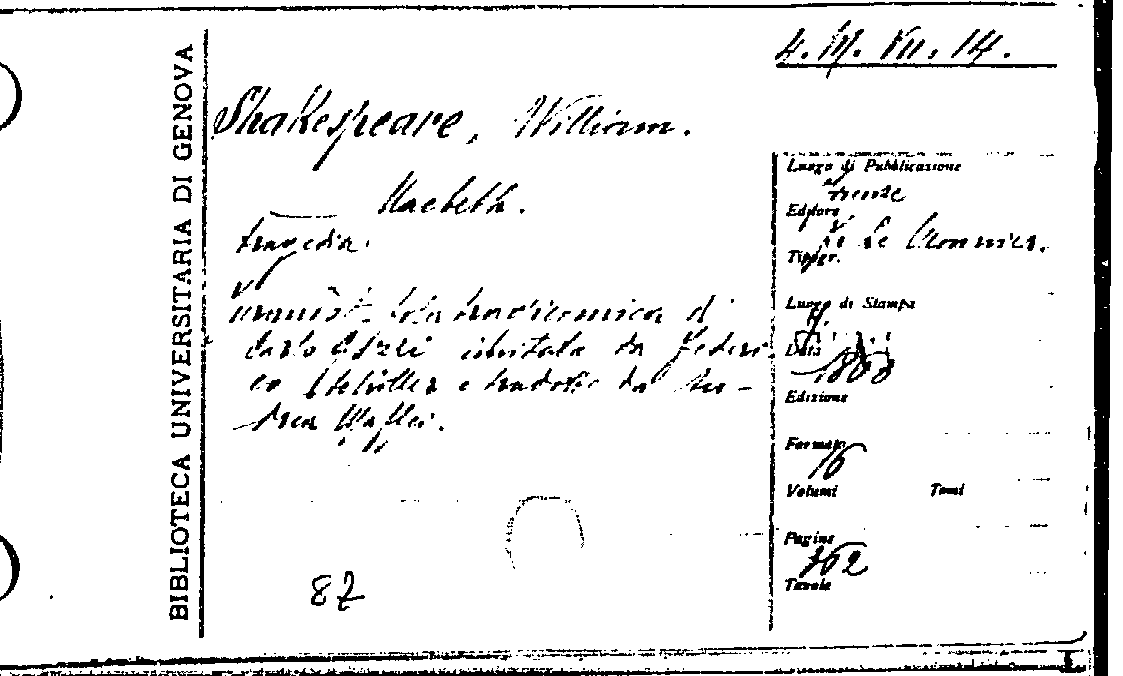 BIBLIOTECA UNIVERSITARIA DI GENOVA
4. VII. 14.
Shakespeare, William.
Macbeth.
tragedia.
fola tragicomica di
Carlo Gozzi imitata da Federi
co Schiller e tradotte da An-
drea Maffei.
87
Luogo di Pubblicazione
Firenze
Editore
Le Monnier.
Tipogr.
Luogo di Stampa
Data
Edizione
Formato
16
Volumi Tomi
Pagine
362
Tavole